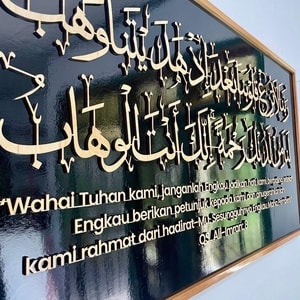 ربنا لا تزغ قلوبنا بعد إذ هديتنا وهب
لنا من لدنك رحمة إنك أنت الوهاب
"Wahai Tuhan kami, janganlah Engkau jadikan hati kami berpaling
Engkau berikan petunjuk kepada kami, dan anugerahilah
kami rahmat dari hadirat-Mu, Sesungguhnya Engkau Maha
QS. Ali-Imran: 8